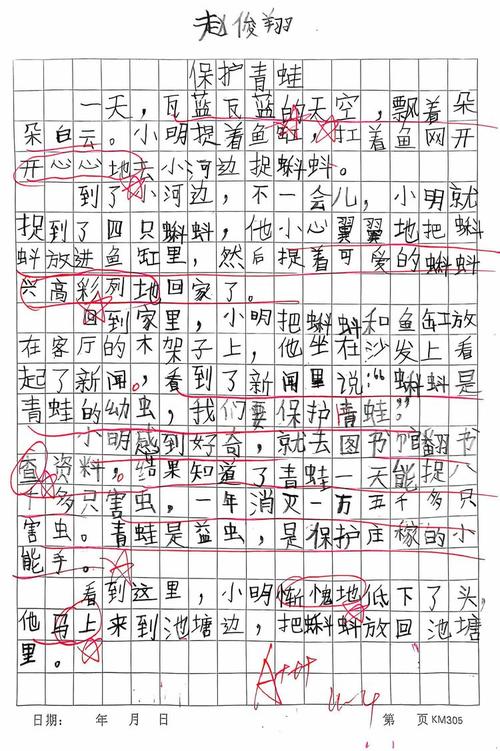 赵俊翔
保护青蛙
一天，瓦蓝瓦蓝的天空，飘着朵
朵白云。小明提着鱼缸，扛着鱼网开
开心心地去小河边捉蝌蚪。
到了小河边，不一会儿，小明就
捉到了四只蝌蚪，他小心翼翼地把蝌
蚪放进鱼缸里，然后提着可爱的蝌蚪
兴高彩列地回家了。
回到家里，小明把蝌蚪和鱼缸放
在客厅的木架子上，他坐在沙发上看
起了新闻。看到了新闻里说：“蝌蚪是
青蛙的幼虫，我们要保护青蛙”
小明感到好奇，就去图书馆翻书
查资料。结果知道了青蛙一天能捉八
十多只害虫，一年消灭一万五千多只
害虫。青蛙是益虫，是保护庄稼的小
能手。
看到这里，小明惭愧地低下了头，
他马上来到池塘边，把蝌蚪放回池塘
里。
A+++
日期： 年 月 日 第 页 KM305